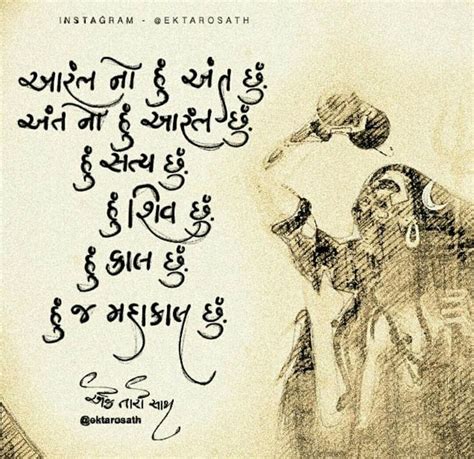 INSTAGRAM - @EKTAROSATH
આરંભ નો હું અંત છું.
અંત નો હું આરંભ છું.
હું સત્ય છું.
હું શિવ છું.
હું કાલ છું.
હું જ મહાકાલ છું.
એક તારો સાથ
@ektarosath